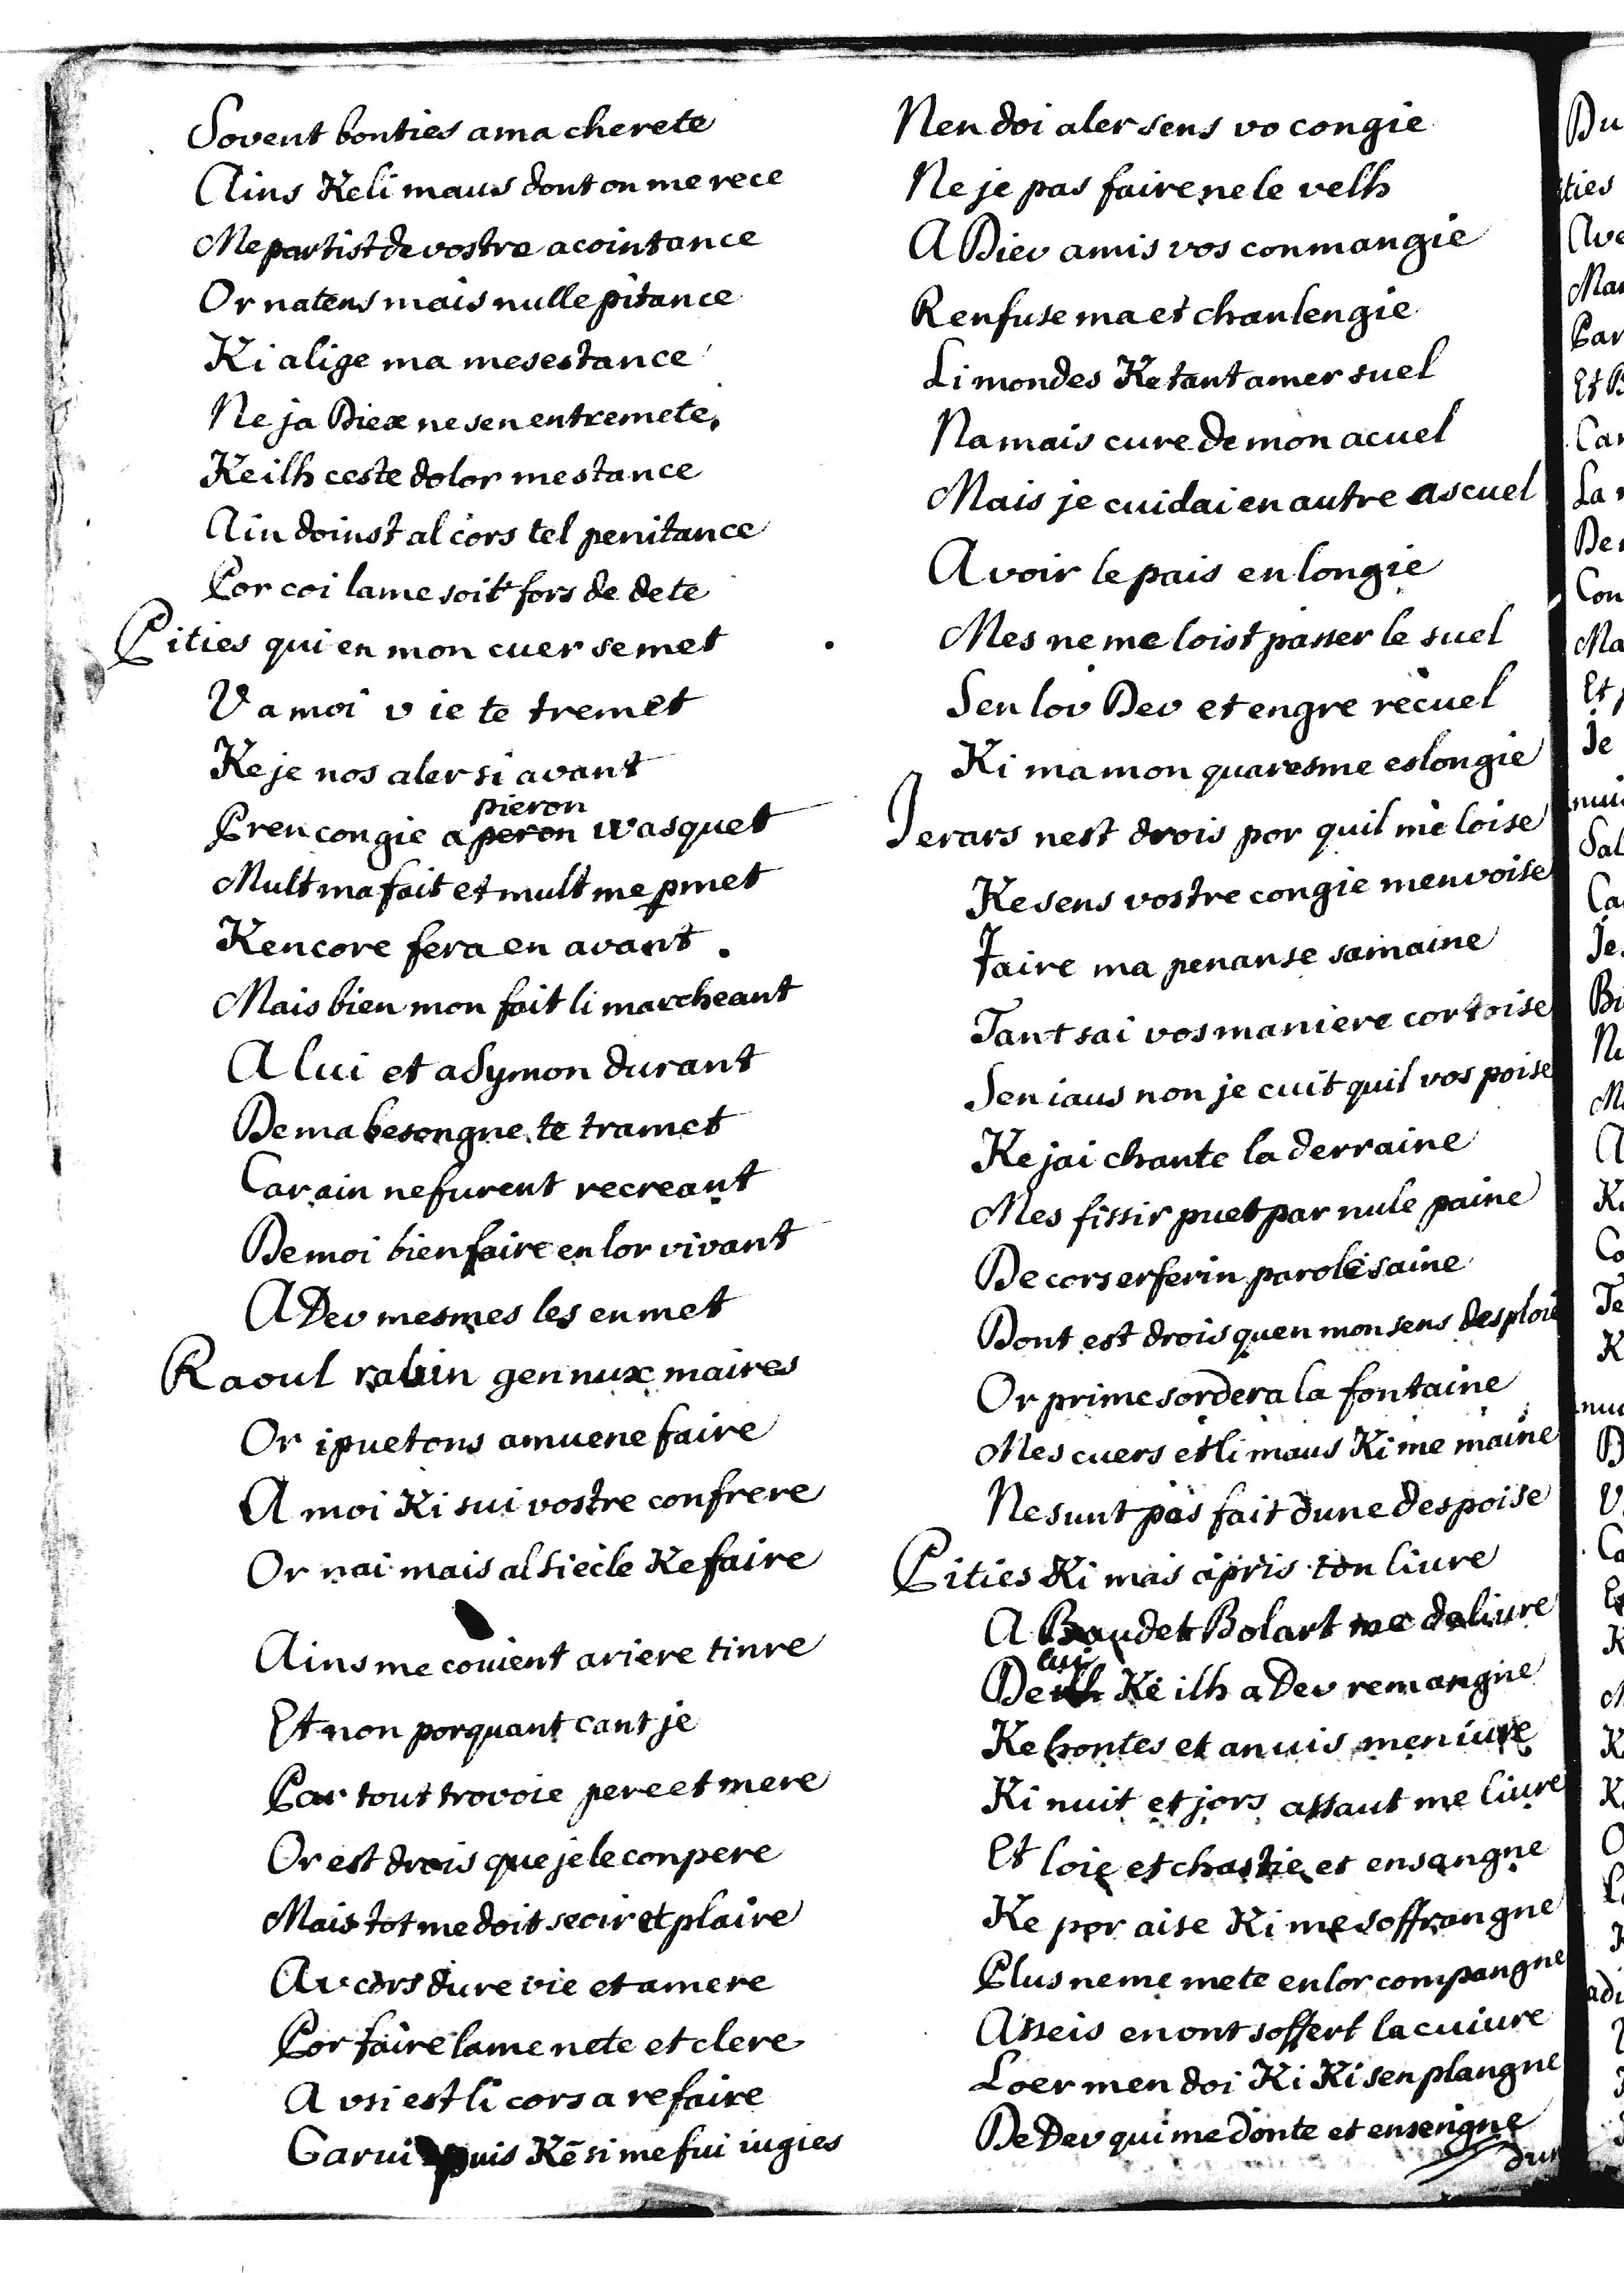 Sovent bonties a ma cherete
Ains Ke li maus dont on me rece
Me partist de vostre acointance
Or natens mais nulle pitance
Ki alige ma mesestance
Ne ja Diex ne sen entremete,
Ke ilh ceste dolor mestance
Ain doinst al cors tel penitance
Por coi lame soit fors de dete
Pities qui en mon cuer se met
Va moi v ie te tremet
Ke je nos aler si avant
pieron
Pren congie a peron wasquet
Mult ma fait et mult me pmet
Kencore fera en avant.
Mais bien mon fait li marcheant
A lui et a Symon durant
De ma besongne te tramet
Car ain ne furent recreant
De moi bien faire en lor vivant
A Dev mesmes les en met
Raoul ravin gennux maires
Or i puet ons amuene faire
A moi Ki sui vostre confrere
Or nai mais al siecle Ke faire
Ains me covient ariere tinre
Et non porquant cant je
Par tout trovoie pere et mere
Or est drois que je le conpere
Mais tot me doit seoir et plaire
Av cors dure vie et amere
Por faire lame nete et clere
A vsi est li cors a refaire
Garui puis Kē si me fui iugies
Nen doi aler sens vo congie
Ne je pas faire ne le velh
A Diev amis vos conmangie
Renfuse ma et chanlengie
Li mondes Ke tant amer suel
Na mais cure de mon acuel
Mais je cuidai en autre ascuel
Avoir le pais enlongie
Mes ne me loist passer le suel
Sen lov Dev et en gre recuel
Ki ma mon quaresme eslongie
Jerars nest drois por quil me loise
Ke sens vostre congie men voise
Faire ma penanse samaine
Tant sai vos maniere cortoise
Sen iaus non je cuit quil vos poise
Ke jai chante la derraine
Mes fissir puet par nule paine
De cors erferin parole saine
Dont est drois quen mon sens desploie
Or prime sordera la fontaine
Mes cuers et li maus Ki me maine
Ne sunt pas fait dune despoise
Pities Ki mais apris ton liure
A Baudet Bolart me deliure
lui
De ilh Ke ilh a Dev remangne
Ke hontes et anuis men iure
Ki nuit et jors assaut me liure
Et loie et chastie et ensangne
Ke por aise Ki me soffrangne
Plus ne me mete en lor compangne
Asseis en ont soffert la cuiure
Loer men doi Ki Ki sen plangne
De Dev qui me donte et enseigne
dun